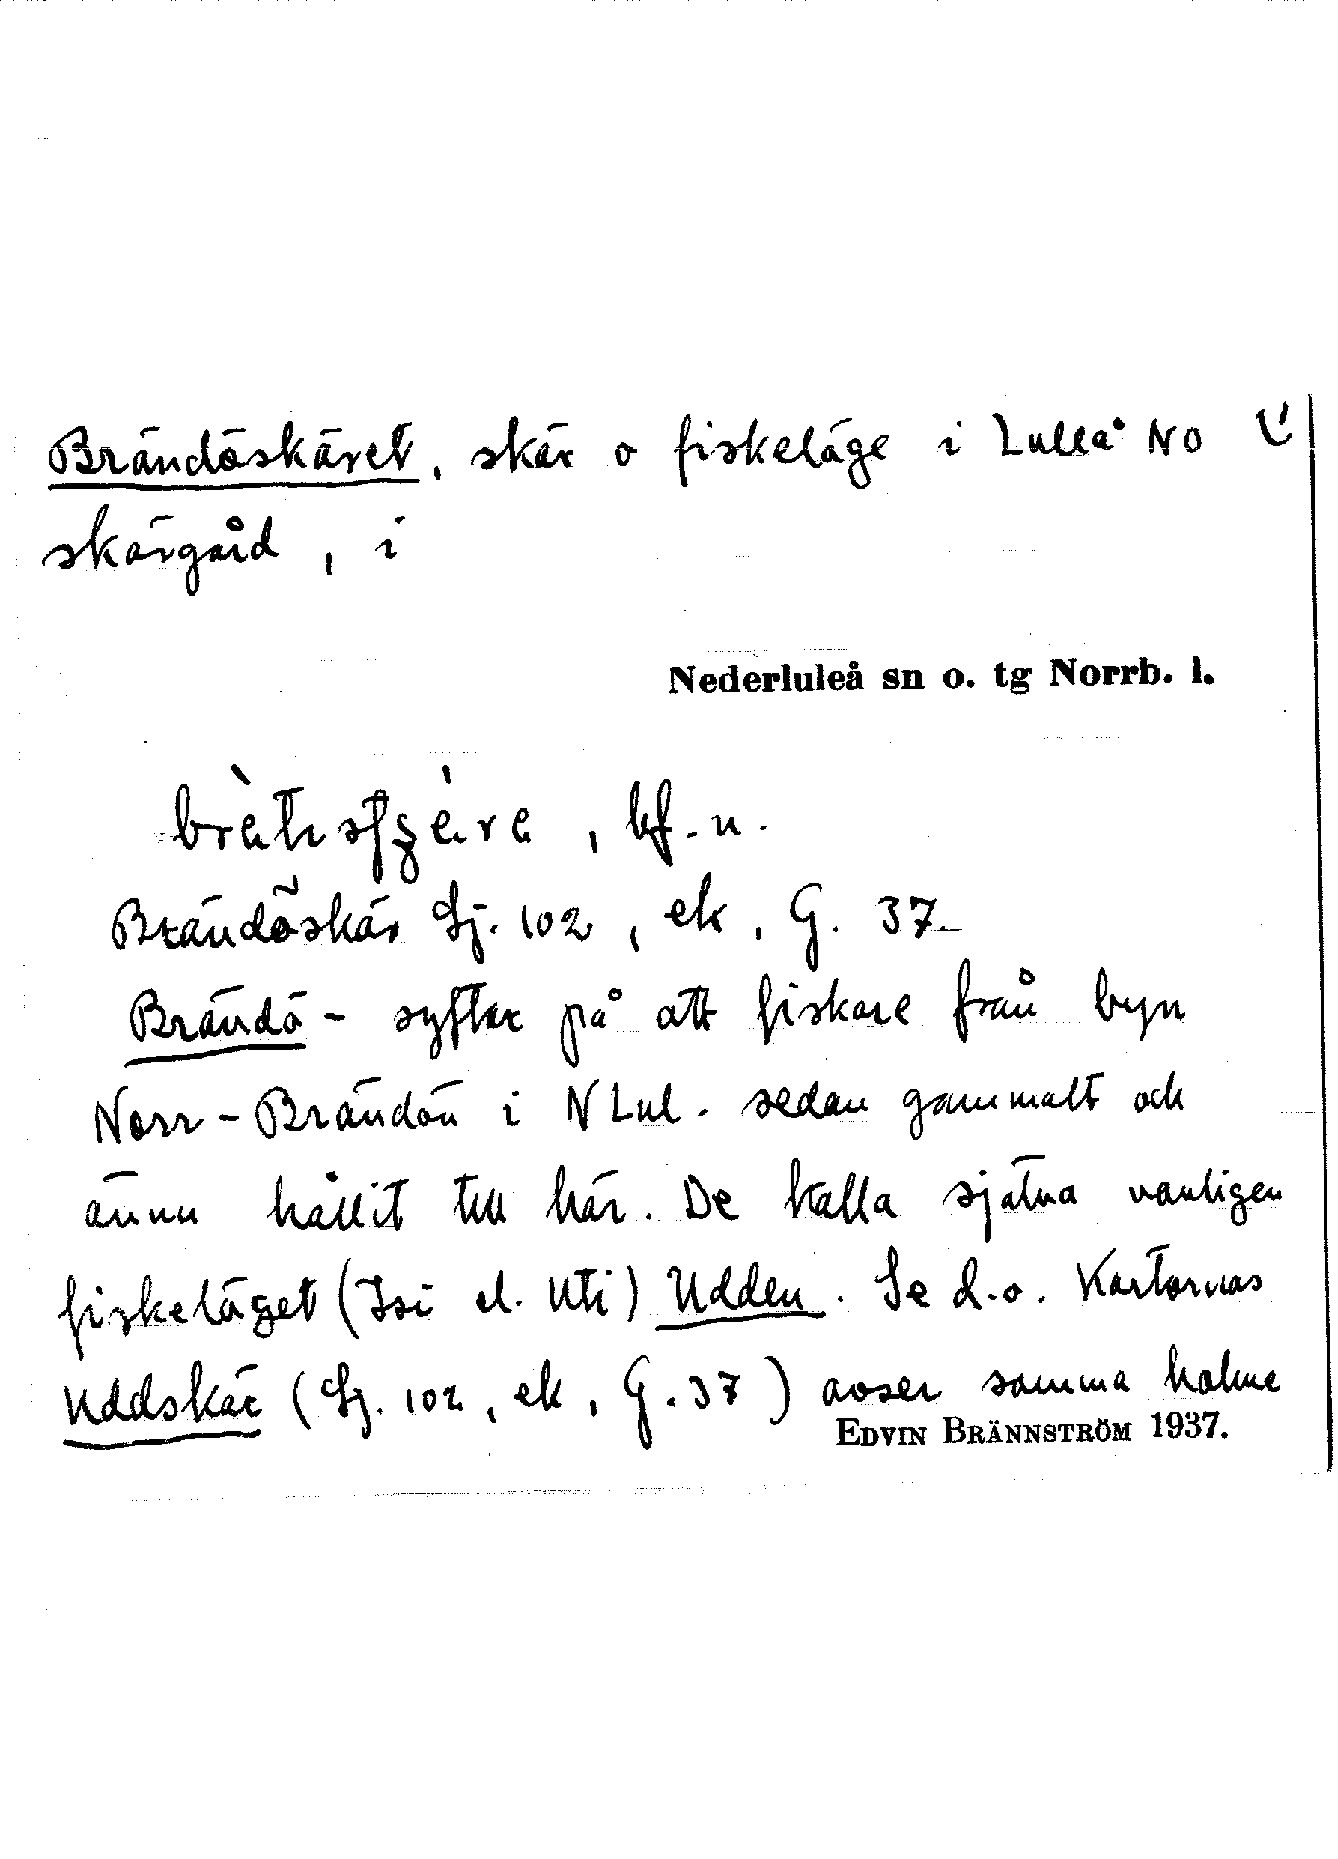 Brändöskäret, skär o fiskeläge i Luleå NO
skärgård, i
Nederluleå sn o. tg Norrb. l.
, bf. n.
Brändöskär Sj. 102, ek, G. 37.
Brändö- syftar på att fiskare från byn
Norr-Brändön i NLul. sedan gammalt och
ännu hållit till här. De kalla själva vanligen
fiskeläget (Isi el. Uti) Udden. Se d.o. Kartornas
Uddskär (Sj. 102, ek, G. 37) avser samma holme
EDVIN BRÄNNSTRÖM 1937.